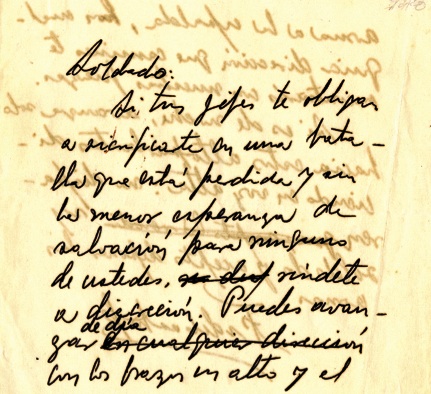 Soldado:
Si tus jefes te obligan
a sacrificarte en una bata-
lla que está perdida y sin
la menor esperanza de
salvación para ninguno
de ustedes, rindete
a discreción. Puedes avan-
de día
zar en cualquier dirección
con los brazos en alto y el